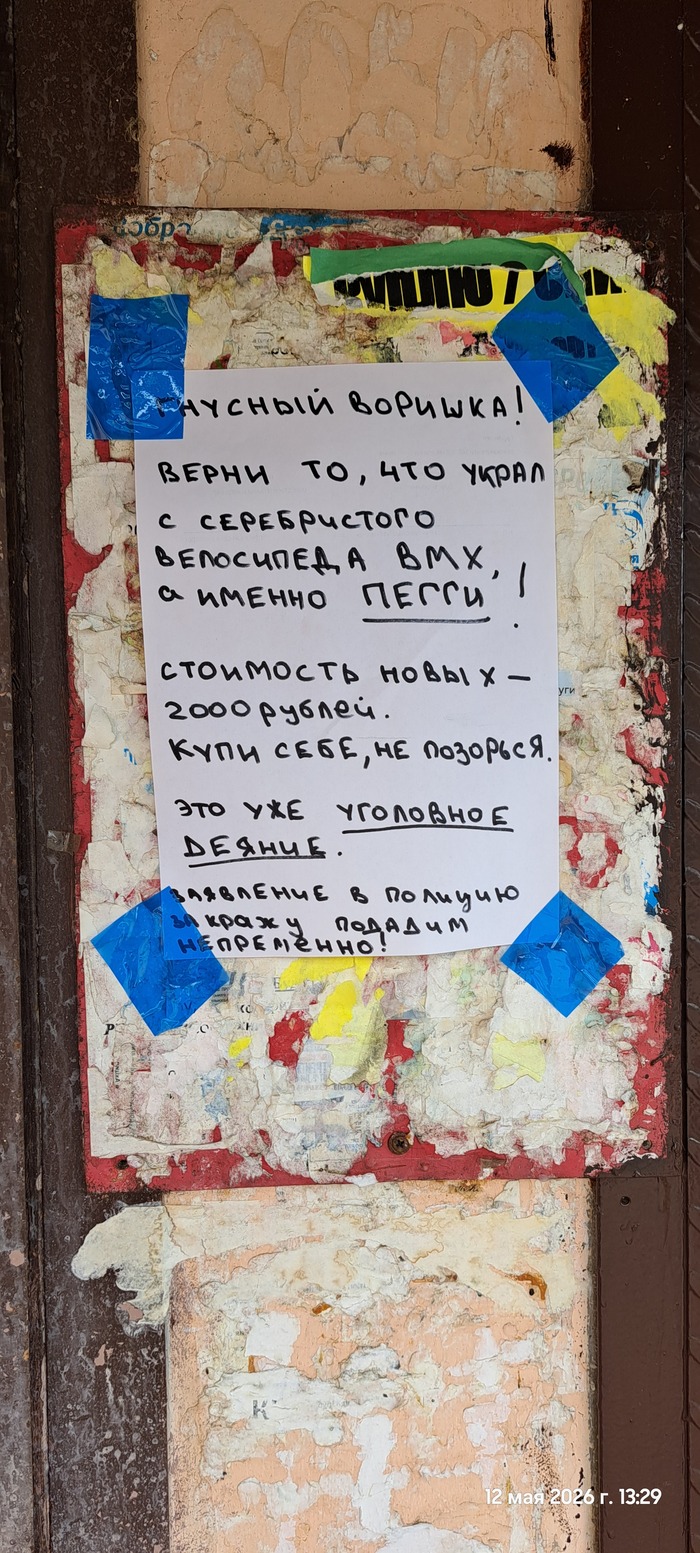 добр
ГНУСНЫЙ ВОРИШКА!
ВЕРНИ ТО, ЧТО УКРАЛ
С СЕРЕБРИСТОГО
ВЕЛОСИПЕДА ВМХ,
а ИМЕННО ПЕГГИ!
СТОИМОСТЬ НОВЫХ –
2000 рублей.
КУПИ СЕБЕ, НЕ ПОЗОРЬСЯ.
ЭТО УЖЕ УГОЛОВНОЕ
ДЕЯНИЕ.
ЗАЯВЛЕНИЕ В ПОЛИЦИЮ
ЗА кражу ПОДАДИМ
НЕПРЕМЕННО!
12 мая 2026 г. 13:29